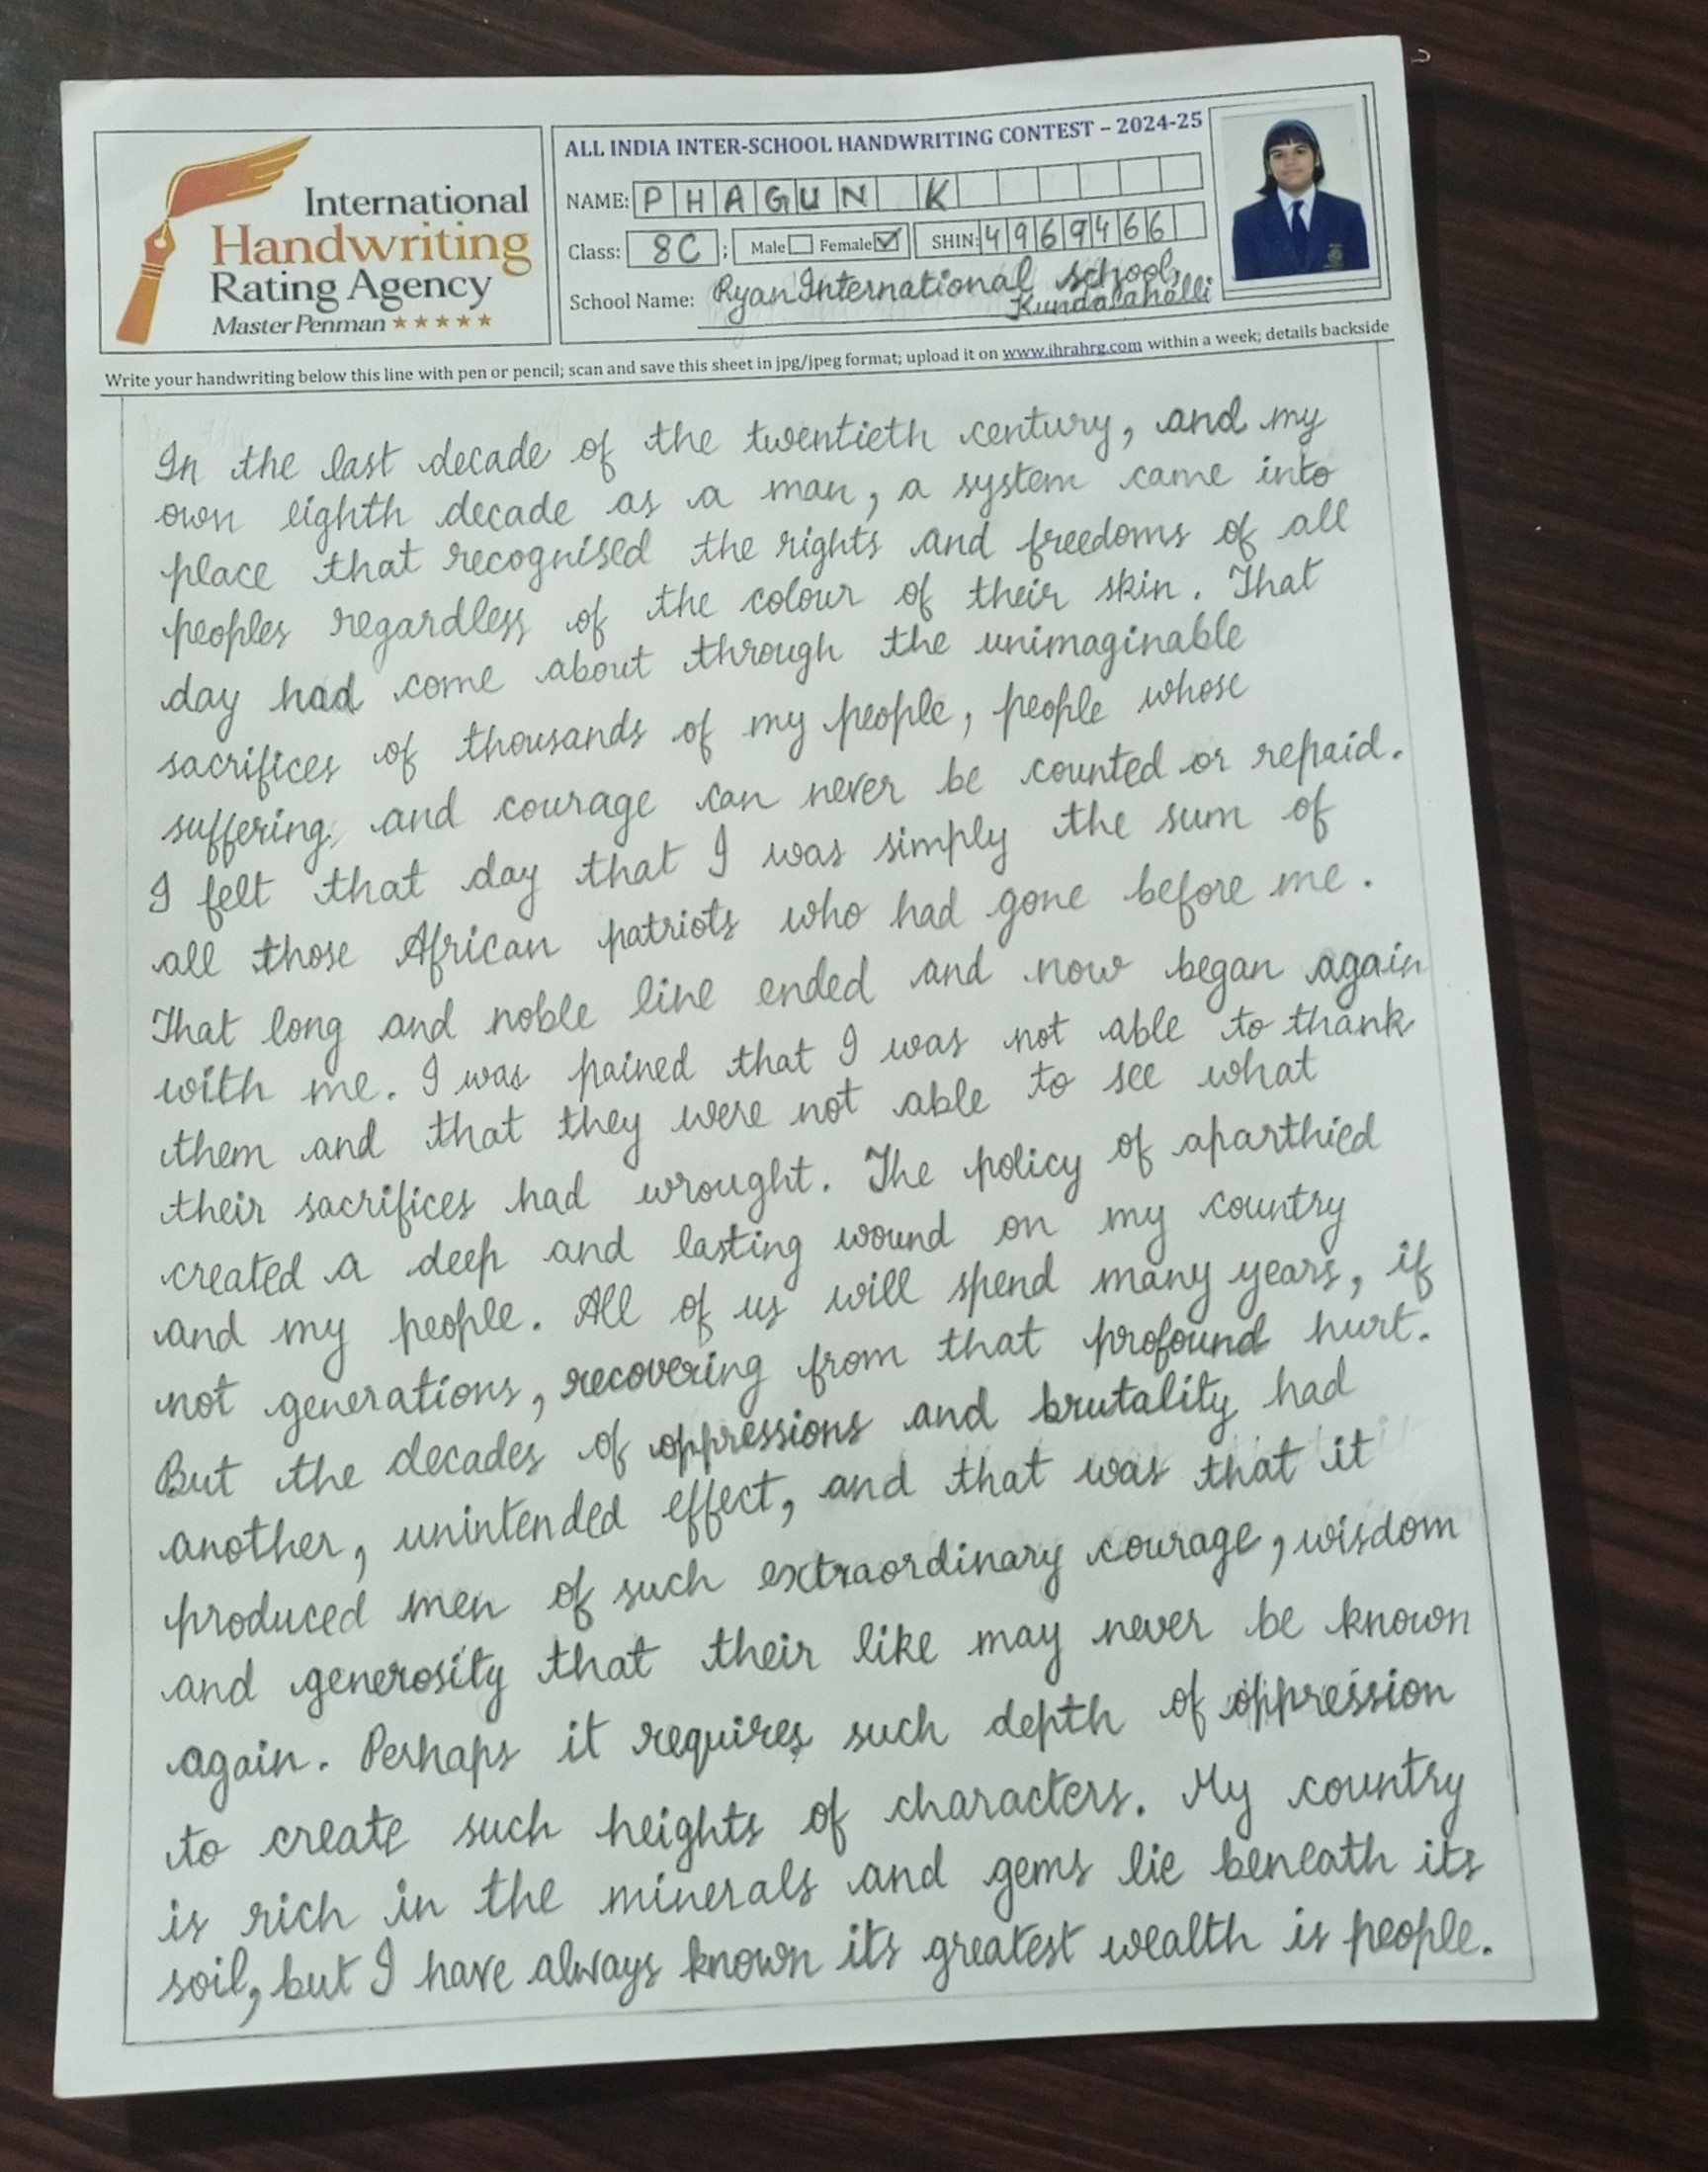 International
Handwriting
Rating Agency
Master Penman ★★★★★
ALL INDIA INTER-SCHOOL HANDWRITING CONTEST – 2024-25
NAME: PHAGUN K
Class: 8C ; Male Female SHIN: 4969466
School Name: Ryan International school,
Kundalahalli
Write your handwriting below this line with pen or pencil; scan and save this sheet in jpg/jpeg format; upload it on www.ihrahrg.com within a week; details backside
In the last decade of the twentieth century, and my
own eighth decade as a man, a system came into
place that recognised the rights and freedoms of all
peoples regardless of the colour of their skin. That
day had come about through the unimaginable
sacrifices of thousands of my people, people whose
suffering and courage can never be counted or repaid.
I felt that day that I was simply the sum of
all those African patriots who had gone before me.
That long and noble line ended and now began again
with me. I was pained that I was not able to thank
them and that they were not able to see what
their sacrifices had wrought. The policy of aparthied
created a deep and lasting wound on my country
and my people. All of us will spend many years, if
not generations, recovering from that profound hurt.
But the decades of oppressions and brutality had
another, unintended effect, and that was that it
produced men of such extraordinary courage, wisdom
and generosity that their like may never be known
again. Perhaps it requires such depth of oppression
to create such heights of characters. My country
is rich in the minerals and gems lie beneath its
soil, but I have always known its greatest wealth is people.